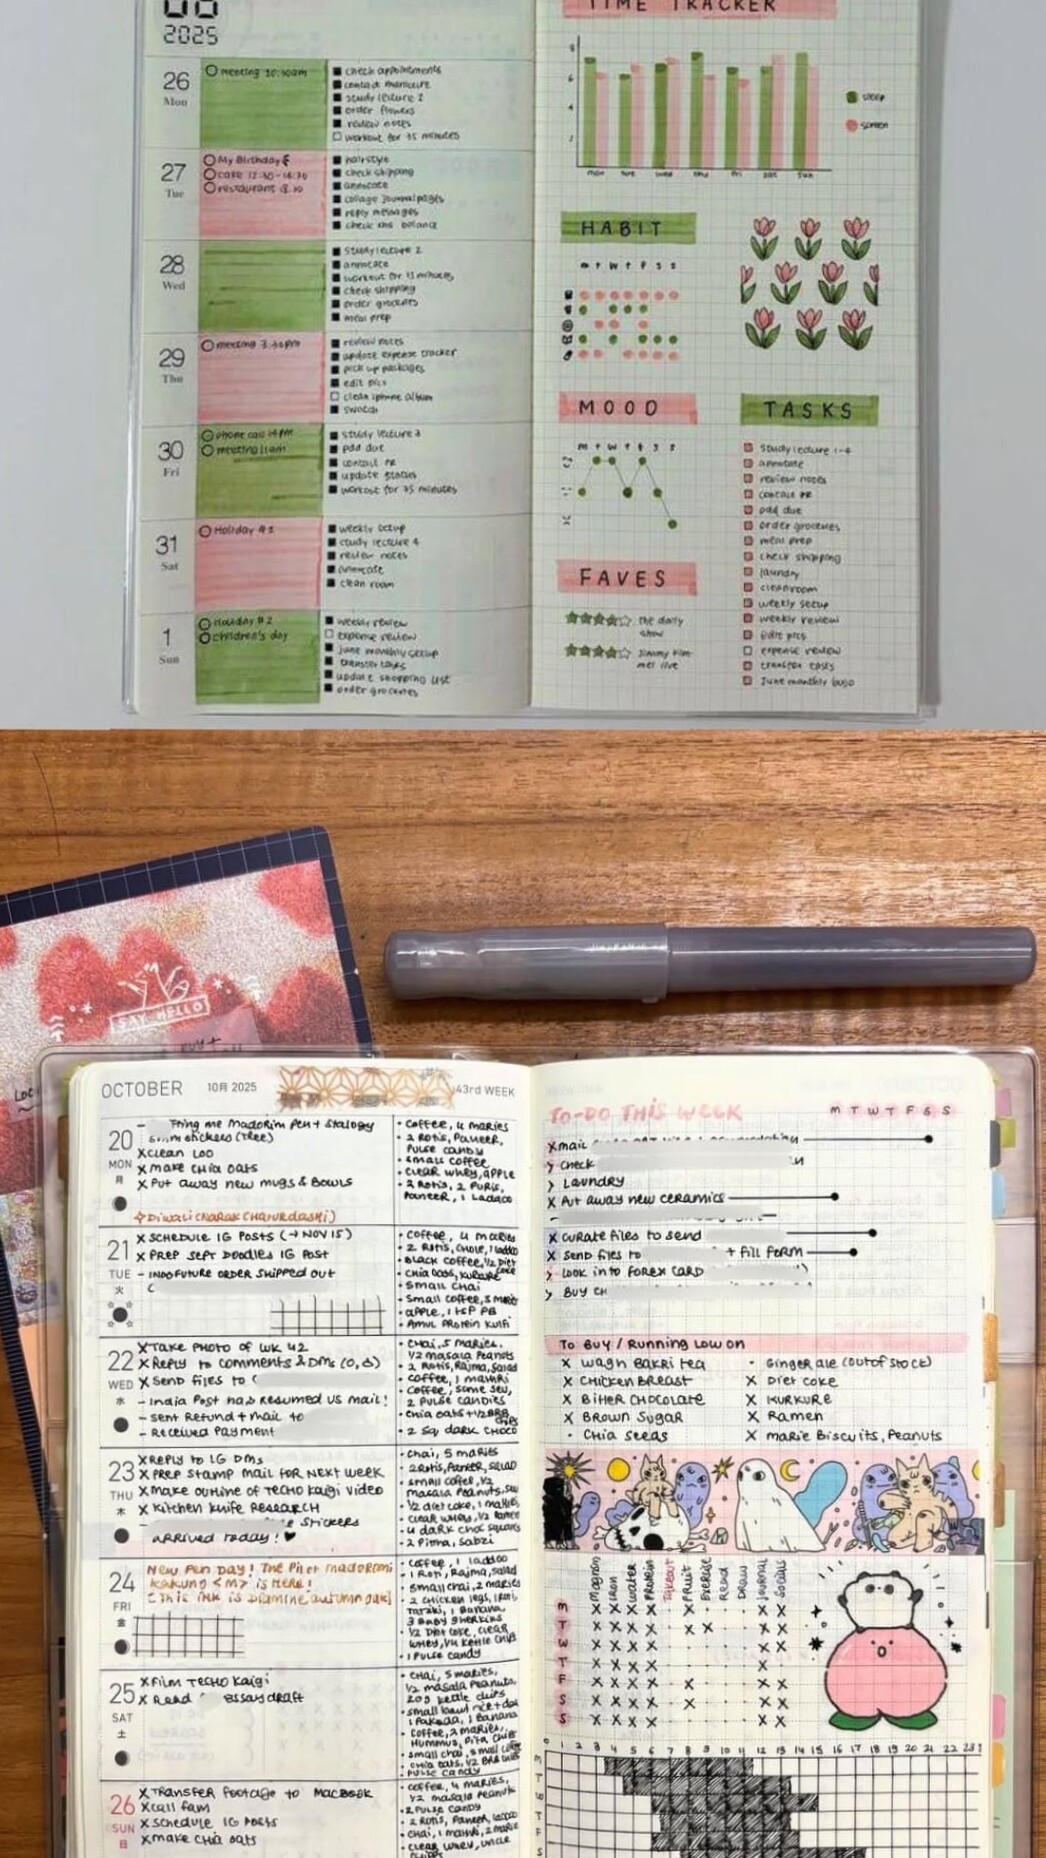 2025
TIME TRACKER
26
Mon
meeting 10:30am
check appointments
contact manicure
study lecture 2
order flowers
review notes
workout for 35 minutes
27
Tue
My Birthday
cake 12:30-14:30
restaurant
hairstyle
check shipping
annotate
collage journal pages
reply messages
check the balance
28
Wed
study lecture 2
annotate
workout for 15 minutes
check shipping
order groceries
meal prep
29
Thu
meeting 3:30pm
review notes
update expense tracker
pick up packages
edit pics
clean iphone album
swatch
30
Fri
phone call
meeting 11am
study lecture 3
pdd due
contact PR
update status
workout for 35 minutes
31
Sat
Holiday #1
weekly setup
study lecture 4
review notes
annotate
clean room
1
Sun
Holiday #2
children's day
weekly review
expense review
june monthly setup
transfer tasks
update shopping list
order groceries
mon tue wed thu fri sat sun
sleep
screen
HABIT
m t w t f s s
MOOD
m t w t f s s
FAVES
the daily
show
Jimmy Kim-
mel live
TASKS
study lecture 1-4
annotate
review notes
contact PR
pdd due
order groceries
meal prep
check shopping
laundry
clean room
weekly setup
weekly review
edit pics
expense review
transfer tasks
June monthly bujo
SAY HELLO
OCTOBER 10月 2025 43rd WEEK
20
MON
月
me Madorim Pen + Stalogy
stickers (Tree)
x clean Loo
x make chia oats
x Put away new mugs & Bowls
Diwali (Narak Chaturdashi)
• coffee, 4 maries
• 2 Rotis, Paneer,
Pulse candy
• small coffee
• clear whey, apple
• 2 Rotis, 2 Puris,
Paneer, 1 Laddoo
21
TUE
火
x Schedule IG Posts (→ NOV 15)
x Prep Sept Doodles IG Post
- Indofuture order shipped out
• coffee, 4 maries
• 2 Rotis, Chole, 1 laddo
• Black coffee, 1/2 Diet
coke
• chia oats, kurkure
• small chai
• Small coffee, 3 maries
• apple, 1 tsp PB
• Amul Protein Kulfi
22
WED
水
x Take photo of WK 42
x Reply to comments & DMs
x Send files to
- India Post has resumed US mail!
- sent Refund + mail to
- Received Payment
• chai, 5 maries,
1/2 masala Peanuts
• 2 Rotis, Rajma, salad
• coffee, 1 mathri
• coffee, some sev,
2 Pulse candies
• chia oats + 1/2 BRB
chips
• 2 sq dark choco
23
THU
木
x Reply to IG DMs
x Prep stamp mail for next week
x make outline of Techo Kaigi video
x kitchen knife research
stickers
arrived today! ♥
• chai, 5 maries
• 2 Rotis, Paneer, salad
• small coffee, 1/2
masala Peanuts, sev
• 1/2 diet coke, 1 mathri
• clear whey, 1/2 Ramen
• 4 dark choc squares
• 2 Pitha, sabzi
24
FRI
金
New Pen Day! The Pilot madoromi
Kakuno <M> is Here!
(This ink is Diamine autumn oak)
• coffee, 1 laddoo
• 1 Roti, Rajma, salad
• small chai, 2 maries
• 2 chicken legs, 1 Roti
Tatziki, 1 Banana
3 Baby gherkins
• 1/2 Diet coke, clear
whey, 1/4 kettle chips
• 1 Pulse candy
25
SAT
土
x Film Techo Kaigi
x Read essay draft
• chai, 5 maries,
1/2 masala Peanuts,
20g kettle chips
• small bowl rice + dal
1 Pakoda, 1 Banana
• coffee, 2 maries,
Hummus, Pita chips
• small chai, small coffee
• chia oats, 1/2 BRB chips
• Pulse candy
26
SUN
日
x Transfer footage to MacBook
x call fam
x schedule IG Posts
x make chia oats
• coffee, 4 maries,
1/2 masala Peanuts
• 2 Pulse candy
• 2 Rotis, Paneer, laddoo
• chai, 1 mathri, 2 marie
• clear whey, uncle
chipps
TO-DO THIS WEEK
M T W T F S S
x mail
> check
> Laundry
x Put away new ceramics
x curate files to send
x Send files to + fill form
> Look into Forex card
> Buy
To Buy / Running Low on
x wagh Bakri tea
x chicken Breast
x Bitter chocolate
x Brown Sugar
• Chia seeds
• Ginger ale (out of stock)
x Diet coke
x Kurkure
x Ramen
x marie Biscuits, Peanuts
Magnsm Iron Water Protein Takeout Fruit Exercise Read Draw Journal Socials
M
T
W
T
F
S
S
0 1 2 3 4 5 6 7 8 9 10 11 12 13 14 15 16 17 18 19 20 21 22 23
M
T
W
T
F
S